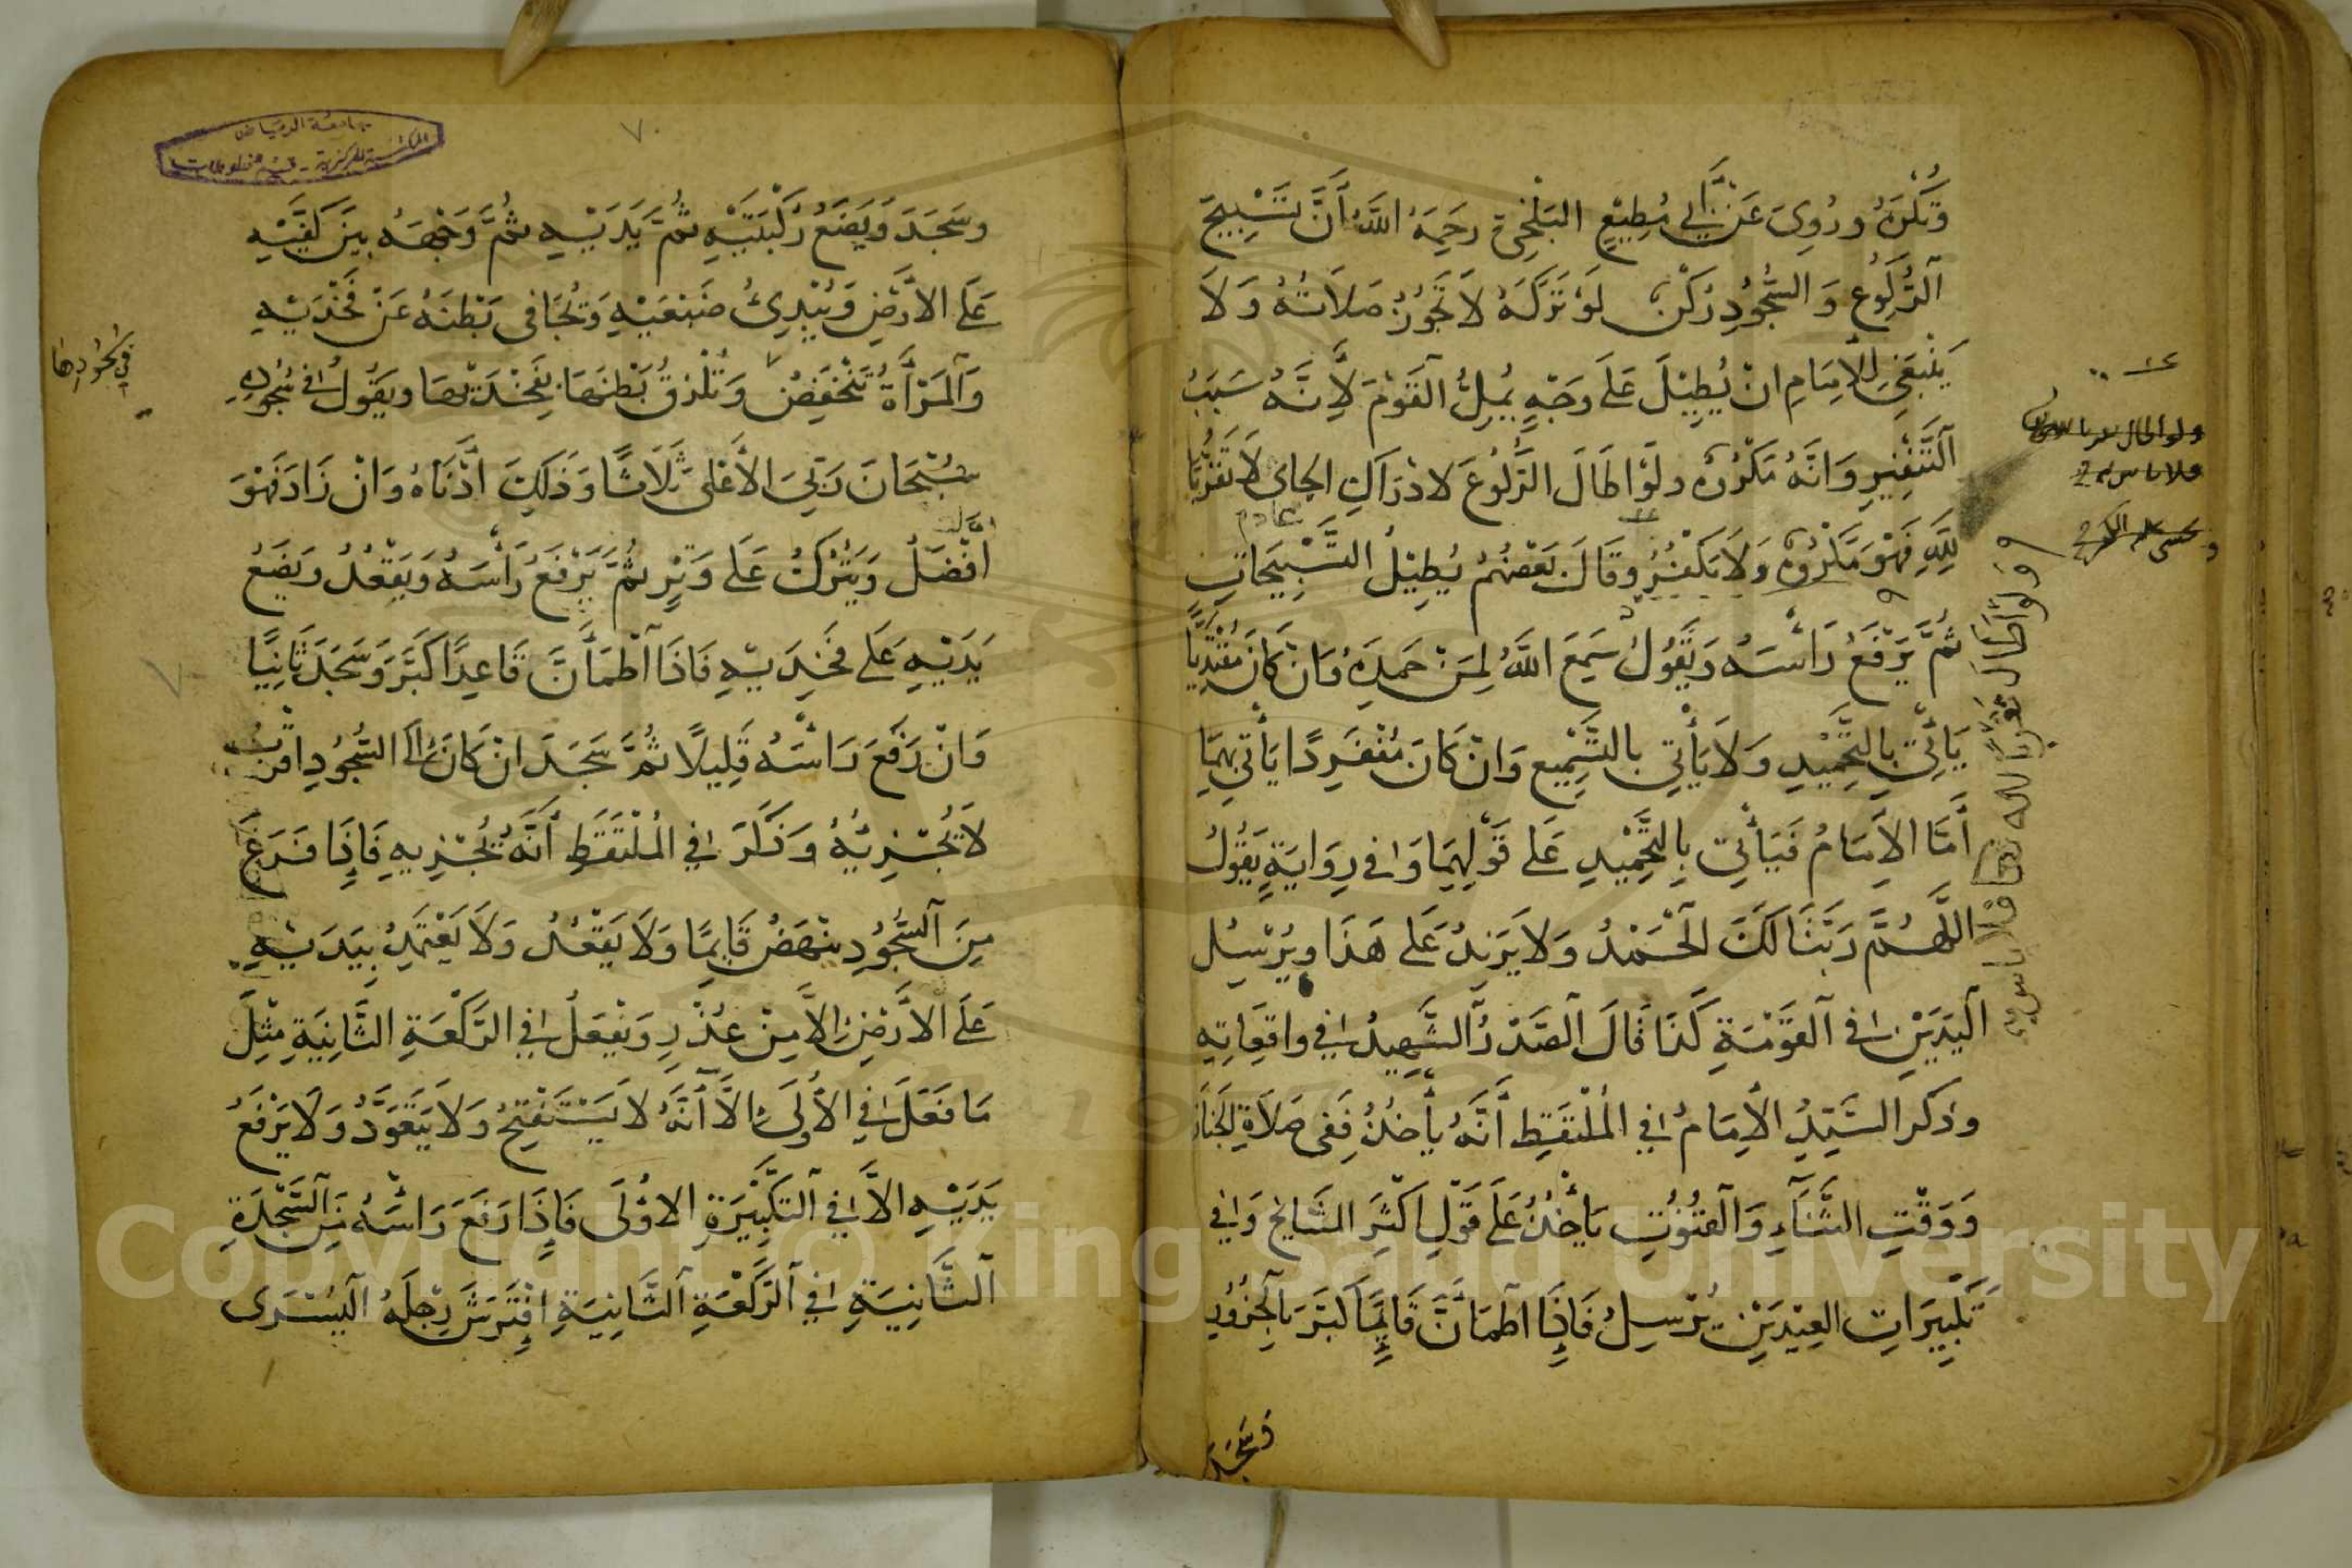 وَتُكْرَهُ وَرُوِيَ عَنْ أَبِي مُطِيْعٍ البَلْخِيّ رَحِمَهُ اللَّهُ أَنَّ تَسْبِيحَ
الرُّكُوْعِ وَ السُّجُوُدِ رُكْنٌ لَوْ تَرَكَهُ لاَ تَجُوْزُ صَلاَتُهُ وَلاَ
يَنْبَغِي لِلاِمَامِ انْ يُطِيْلَ عَلَى وَجْهٍ يُمِلُّ الْقَوْمَ لِأَنَّهُ سَبَبُ
التَّنْفِيْرِ وَانَّهُ مَكْرُوْهٌ ولَوْ اطَالَ الرُّكُوْعَ لادْرَاكِ الجاى لاَ تَقَرُّبًا
لِلَّهِ فَهْوَ مَكْرُوْهٌ وَلاَ يَكْفُرُ وقَالَ بَعْضُهُمْ يُطِيْلُ التَّسْبِيْحَاتِ
ثُمَّ يَرْفَعُ رَأْسَهُ وَيَقُوْلُ سَمِعَ اللَّهُ لِمَنْ حَمِدَهُ وَانْ كَانَ مُقْتَدِيًا
يَأْتِي بِالتَّحْمِيْدِ وَلاَ يَأْتِي بالتَّسْمِيْعِ وَانْ كَانَ مُنْفَرِدًا يَأْتِي بِهِمَا
أَمَّا الاِمَامُ فَيَأْتِي بِالتَّحْمِيْدِ عَلَى قَوْلِهِمَا وَفِي رِوَايَةٍ يَقُوْلُ
اللَّهُمَّ رَبَّنَا لَكَ الْحَمْدُ وَلاَ يَزِيْدُ عَلَى هَذَا ويُرْسِلُ
الْيَدَيْنِ فِي الْقَوْمَةِ كَذَا قَالَ الْصَّدْرُ الشَّهِيْدُ فِي واقِعَاتِهِ
وذكر السَّيِّدُ الاِمَامُ فِي الْمُلْتَقَطِ أَنَّهُ يَأْخُذُ فَفِى صَلاَةِ الجَنَازَ
وَوَقْتِ الثَّنَآءِ وَالْقُنُوْتِ يَأْخُذُ عَلَى قَوْلِ اكْثَرِ المَشَايِخِ وَفِي
تَكْبِيْرَاتِ الْعِيْدَيْنِ يُرْسِلُ فَاِذَا اطْمَأَنَّ قَائِمًا كَبَّرَ بِالخُرُوْرِ
وَسَجَدَ
ولو اطال تقربا لله تعالى فلا باس به
جامعة الرياض
المكتبة المركزية - قسم المخطوطات
٧
وسَجَدَ وَيَضَعُ رُكْبَتَيْهِ ثُمَّ يَدَيْهِ ثُمَّ وَجْهَهُ بَيْنَ كَفَّيْهِ
عَلَى الاَرْضِ وَيُبْدِئُ ضَبْعَيْهِ وَيُجَافِى بَطْنَهُ عَنْ فَخْذَيْهِ
وَالْمَرْأَةُ تَنْخَفِضُ وَتُلْزِقُ بَطْنَهَا بِفَخْذَيْهَا وَيَقُوْلُ فِي سُجُوْدِهِ
في سجودها
سُبْحَانَ رَبِّيَ الاَعْلَى ثَلاَثًا وَذَلِكَ أَدْنَاهُ وَانْ زَادَ فَهْوَ
افْضَلُ وَيَتْرُكُ عَلَى وَتْرٍ ثُمَّ يَرْفَعُ رَأْسَهُ وَيَقْعُدُ وَيَضَعُ
يَدَيْهِ عَلَى فَخِدَيْهِ فَاذَا اطْمَأَنَّ قَاعِدًا كَبَّرَ وَسَجَدَ ثَانِيًا
وَانْ رَفَعَ رَأْسَهُ قَلِيْلاً ثُمَّ سَجَدَ انْ كَانَ الَى السُّجُوْدِ اقْرَبُ
لاَ يُجْزِيْهُ وَذَكَرَ فِي الْمُلْتَقَطِ أَنَّهُ يُجْزِيهِ فَاِذَا فَرَغَ
مِنَ السُّجُوْدِ يَنْهَضُ قَايِمًا وَلاَ يَقْعُدُ وَلاَ يَعْتَمِدُ بِيَدَيْهِ
عَلَى الاَرْضِ اِلاَّ مِنْ عُذْرٍ وَيَفْعَلُ فِي الرَّكْعَةِ الثَّانِيَةِ مِثْلَ
مَا فَعَلَ فِي الاُوْلَى اِلاَّ أَنَّهُ لاَ يَسْتَفْتِحُ وَلاَ يَتَعَوَّذُ وَلاَ يَرْفَعُ
يَدَيْهِ الاَّ فِي التَّكْبِيْرَةِ الاُوْلَى فَاِذَا رَفَعَ رَأْسَهُ مِنَ السَّجْدَةِ
الثَّانِيَةِ فِي الرَّكْعَةِ الثَّانِيَةِ اِفْتَرَشَ رِجْلَهُ الْيُسْرَى
Copyright © King Saud University